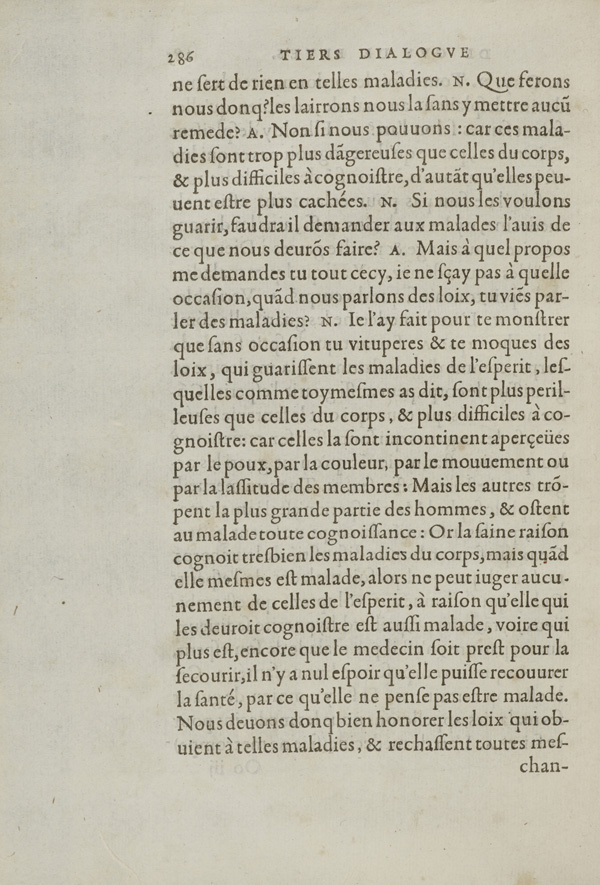 286 TIERS DIALOGVE
ne ſert de rien en telles maladies. N. Que ferons
nous donq?les lairrons nous la ſans y mettre aucũ
remede? A. Non ſi nous pouuons : car ces mala-
dies ſont trop plus dãgereuſes que celles du corps,
& plus difficiles à cognoiſtre, d'autãt qu'elles peu-
uent eſtre plus cachées. N. Si nous les voulons
guarir, faudra il demander aux malades l'auis de
ce que nous deurõs faire? A. Mais à quel propos
me demandes tu tout cecy, ie ne ſçay pas à quelle
occaſion, quãd nous parlons des loix, tu viẽs par-
ler des maladies? N. Ie l'ay fait pour te monſtrer
que ſans occaſion tu vituperes & te moques des
loix, qui guariſſent les maladies de l'eſperit, leſ-
quelles comme toymeſmes as dit, ſont plus peril-
leuſes que celles du corps, & plus difficiles à co-
gnoiſtre: car celles la ſont incontinent aperçeües
par le poux, par la couleur, par le mouuement ou
par la laſſitude des membres : Mais les autres trõ-
pent la plus grande partie des hommes, & oſtent
au malade toute cognoiſſance : Or la ſaine raiſon
cognoit treſbien les maladies du corps, mais quãd
elle meſmes eſt malade, alors ne peut iuger aucu-
nement de celles de l'eſperit, à raiſon qu'elle qui
les deuroit cognoiſtre eſt auſſi malade, voire qui
plus eſt, encore que le medecin ſoit preſt pour la
ſecourir, il n'y a nul eſpoir qu'elle puiſſe recouurer
la ſanté, par ce qu'elle ne penſe pas eſtre malade.
Nous deuons donq bien honorer les loix qui ob-
uient à telles maladies, & rechaſſent toutes meſ-
chan-